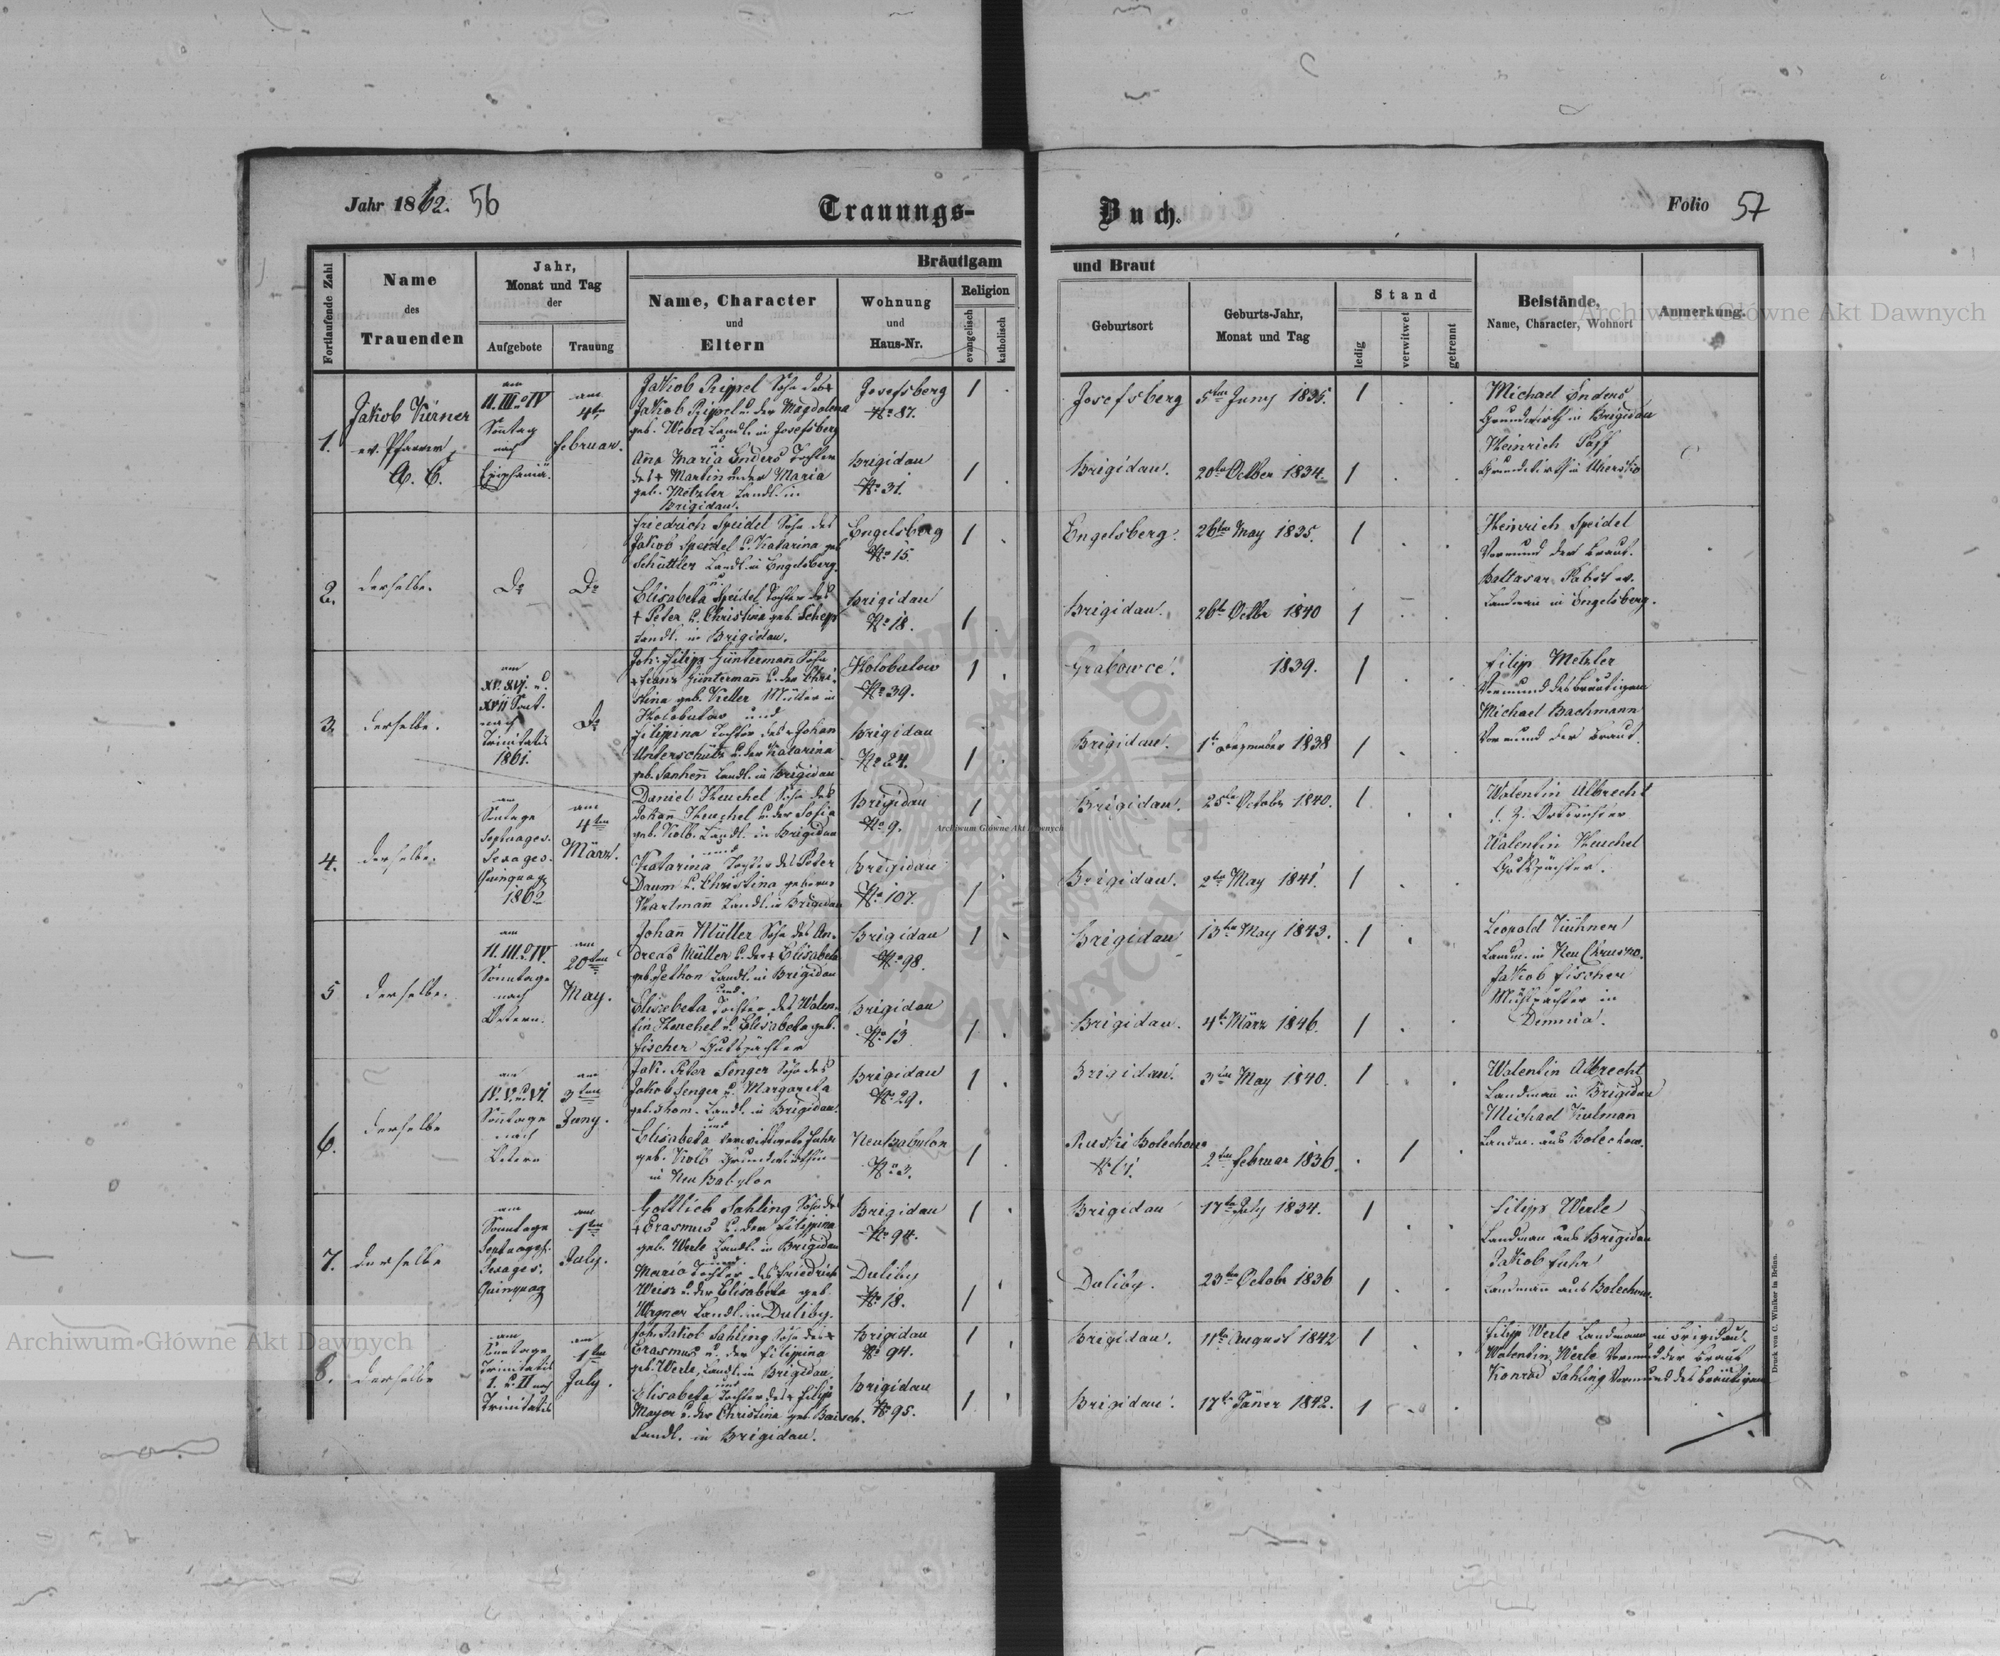 Jahr 1862. 56
Trauungs-
Buch.
Folio 57
Fortlaufende Zahl
Name
des
Trauenden
Jahr,
Monat und Tag
der
Aufgebote
Trauung
Bräutigam
und Braut
Name, Character
und
Eltern
Wohnung
und
Haus-Nr.
Religion
evangelisch
katholisch
Geburtsort
Geburts-Jahr,
Monat und Tag
Stand
ledig
verwitwet
getrennt
Beistände,
Name, Character, Wohnort
Anmerkung.
1.
Jakob Kürner
ev. Pfarrer
A. C.
am
II. III. u IV
Sontag
nach
Epiphaniä.
am
4ten
Februar.
Jakob Rippel Sohn des +
Jakob Rippel u. der Magdalena
geb. Weber Landl. in Josefsberg
u
Anna Maria Enders Tochter
des + Martin u der Maria
geb. Metzler Landl. in
Brigidau.
Josefsberg
No 87.
Brigidau
No 31.
Josefsberg
5ten Juny 1835.
Brigidau.
20te October 1834.
Michael Enders
Grundwirth in Brigidau
Heinrich Paff
Grundwirth in
2.
derselbe.
Do
Do
Friedrich Speidel Sohn des
Jakob Speidel u. Katarina geb
Schüttler Landl. in Engelsberg.
u
Elisabeta Speidel Tochter des
+ Peter u. Christina geb. Schepp
Landl. in Brigidau.
Engelsberg
No 15.
Brigidau
No 18.
Engelsberg.
26ten May 1835.
Brigidau.
26t Octbr 1840
Heinrich Speidel
Vormund der Braut.
Baltasar Pabst ev.
Landmann in Engelsberg.
3
derselbe.
am
XV. XVI. u.
XVII Sont.
nach
Trinitatis
1861.
Do
Joh: Filipp Güntermann Sohn
+ Franz Güntermann u. der Chri-
stina geb. Keller Müller in
Holobutow und
Filipina Tochter des + Johan
Unterschütz u. der Katarina
geb. Landl. in Brigidau
Holobutow
No 39.
Brigidau
No 24.
Grabowce.
1839.
Brigidau.
1t Dezember 1838
Filipp Metzler
Vormund des Bräutigam
Michael Bachmann
Vormund der Braut.
4.
derselbe.
am
Sontage
Septuages.
Sexages.
Quinquag
1862
am
4ten
März.
Daniel Heuchel Sohn des
Johann Heuchel u der Sofia
geb. Kolb. Landl. in Brigidau
und
Katarina Tochter des Peter
Daum u. Christina geborne
Hartmann Landl. in Brigidau
Brigidau
No 9.
Brigidau
No 107.
Brigidau.
25te October 1840.
Brigidau.
2te May 1841.
Walentin Albrecht
d. Z. Ortsrichter
Walentin Heuchel
Gutspächter.
5
derselbe.
am
II. III. u IV.
Sonntage
nach
Ostern.
am
20ten
May.
Johann Müller Sohn des An-
dreas Müller u. der + Elisabeta
geb. Landl. in Brigidau
und.
Elisabeta Tochter des Walen-
tin Heuchel u. Elisabeta geb.
Fischer Gutspächter
Brigidau
No 98.
Brigidau
No 13
Brigidau
13te May 1843.
Brigidau.
4te März 1846.
Leopold Kühner
Landm. in Neu Chrusno.
Jakob Fischer
Mühlpächter in
Demnia.
6.
derselbe
am
IV. V. u. VI
Sontage
nach
Ostern
am
3ten
Juny.
Jak. Peter Senger Sohn des
Jakob Senger u. Margareta
geb. Thom. Landl. in Brigidau.
und
Elisabeta verwittwete Fuhr
geb. Kolb Grundwirthin
in Neu Babylon
Brigidau
No 29.
Neu Babylon
No 3.
Brigidau.
3ten May 1840.
Ruski Bolechow
2ten Februar 1836.
Walentin Albrecht
Landmann in Brigidau
Michael Kulman
Landm. aus Bolechow.
7.
derselbe
am
Sonntage
Septuages.
Sexages.
Quinquag
am
1ten
July.
Gottlieb Sahling Sohn des
+ Erasmus u. der Filippina
geb. Werle Landl. in Brigidau
und.
Maria Tochter des Friedrich
Weisz u. der Elisabeta geb.
Wegner Landl. in Duliby.
Brigidau
No 94.
Duliby
No 18.
Brigidau
17te July 1834.
Duliby.
23te Octobr 1836
Filipp Werle
Landman aus Brigidau
Jakob Fuhr
Landmann aus Bolechow.
8.
derselbe
am
Sontage
Trinitatis
I. u. II nach
Trinitatis
am
1ten
July.
Joh. Jakob Sahling Sohn des +
Erasmus u. der Filipina
geb. Werle, Landl. in Brigidau,
und
Elisabeta Tochter des + Filipp
Mayer u. der Christina geb. Baisch.
Landl. in Brigidau.
Brigidau
No 94.
Brigidau
No 95.
Brigidau.
11te August 1842
Brigidau.
17te Jäner 1842.
Filipp Werle Landmann in Brigidau.
Walentin Werle Vormund der Braut
Konrad Sahling Vormund des Bräutigam
Druck von C. Winiker in Brünn.
Archiwum Główne Akt Dawnych
Archiwum Główne Akt Dawnych
Archiwum Główne Akt Dawnych